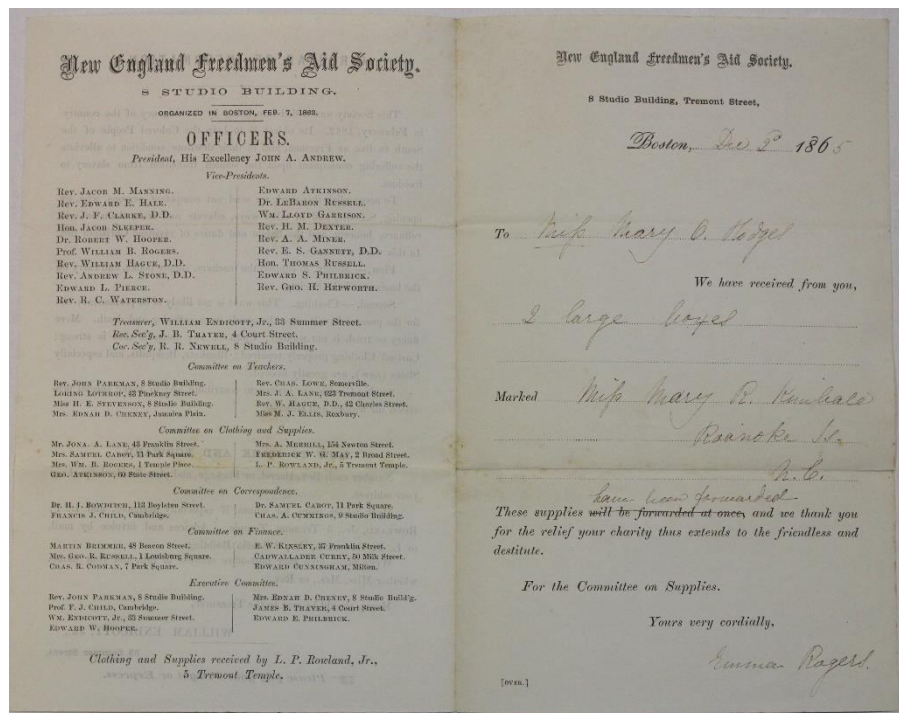 New England Freedmen's Aid Society.
8 STUDIO BUILDING.
ORGANIZED IN BOSTON, FEB. 7, 1862.
OFFICERS.
President, His Excellency JOHN A. ANDREW.
Vice-Presidents.
Rev. JACOB M. MANNING.
Rev. EDWARD E. HALE.
Rev. J. F. CLARKE, D.D.
Hon. JACOB SLEEPER.
Dr. ROBERT W. HOOPER.
Prof. WILLIAM B. ROGERS.
Rev. WILLIAM HAGUE, D.D.
Rev. ANDREW L. STONE, D.D.
EDWARD L. PIERCE.
Rev. R. C. WATERSTON.
EDWARD ATKINSON.
Dr. LEBARON RUSSELL.
WM. LLOYD GARRISON.
Rev. H. M. DEXTER.
Rev. A. A. MINER.
Rev. E. S. GANNETT, D.D.
Hon. THOMAS RUSSELL.
EDWARD S. PHILBRICK.
Rev. GEO. H. HEPWORTH.
Treasurer, WILLIAM ENDICOTT, Jr., 33 Summer Street.
Rec. Sec'y, J. B. THAYER, 4 Court Street.
Cor. Sec'y, R. R. NEWELL, 8 Studio Building.
Committee on Teachers.
Rev. JOHN PARKMAN, 8 Studio Building.
LORING LOTHROP, 43 Pinckney Street.
Miss H. E. STEVENSON, 8 Studio Building.
Mrs. EDNAH D. CHENEY, Jamaica Plain.
Rev. CHAS. LOWE, Somerville.
Mrs. J. A. LANE, 623 Tremont Street.
Rev. W. HAGUE, D.D., 42 Charles Street.
Miss M. J. ELLIS, Roxbury.
Committee on Clothing and Supplies.
Mr. JONA. A. LANE, 43 Franklin Street.
Mrs. SAMUEL CABOT, 11 Park Square.
Mrs. WM. B. ROGERS, 1 Temple Place.
GEO. ATKINSON, 60 State Street.
Mrs. A. MERRILL, 154 Newton Street.
FREDERICK W. G. MAY, 2 Broad Street.
L. P. ROWLAND, Jr., 5 Tremont Temple.
Committee on Correspondence.
Dr. H. I. BOWDITCH, 113 Boylston Street.
FRANCIS J. CHILD, Cambridge.
Dr. SAMUEL CABOT, 11 Park Square.
CHAS. A. CUMMINGS, 9 Studio Building.
Committee on Finance.
MARTIN BRIMMER, 48 Beacon Street.
Mrs. GEO. R. RUSSELL, 1 Louisburg Square.
CHAS. R. CODMAN, 7 Park Square.
E. W. KINSLEY, 37 Franklin Street.
CADWALLADER CURRY, 50 Milk Street.
EDWARD CUNNINGHAM, Milton.
Executive Committee.
Rev. JOHN PARKMAN, 8 Studio Building.
Prof. F. J. CHILD, Cambridge.
WM. ENDICOTT, Jr., 33 Summer Street.
EDWARD W. HOOPER.
Mrs. EDNAH D. CHENEY, 8 Studio Build'g.
JAMES B. THAYER, 4 Court Street.
EDWARD E. PHILBRICK.
Clothing and Supplies received by L. P. Rowland, Jr.,
5 Tremont Temple.
New England Freedmen's Aid Society.
8 Studio Building, Tremont Street,
Boston, Dec 2d 1865
To Miss Mary C. Hodges
We have received from you,
2 large boxes
Marked Miss Mary R. Kimball
Roanoke Is.
N.C.
have been forwarded
These supplies will be forwarded at once, and we thank you
for the relief your charity thus extends to the friendless and
destitute.
For the Committee on Supplies.
Yours very cordially,
Emma Rogers.
[OVER.]